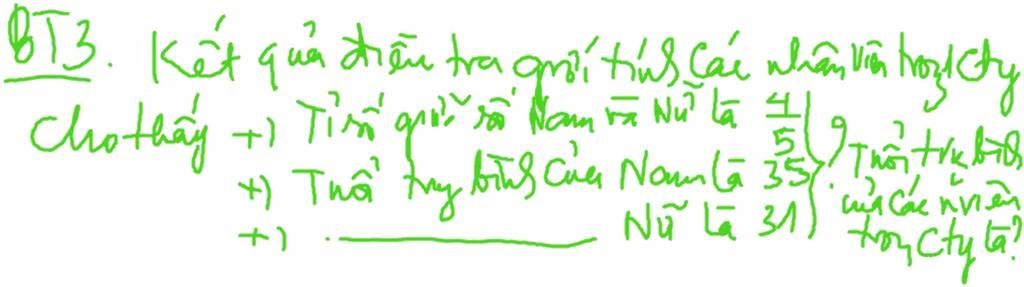 BT3. Kết quả điều tra giới tính các nhân viên trong Cty
cho thấy +) Tỉ số giữa số Nam và Nữ là 4/5
+) Tuổi tr bình của Nam là 35
+) ___________ Nữ là 31
? Tuổi tr bình
của các n viên
trong Cty là?